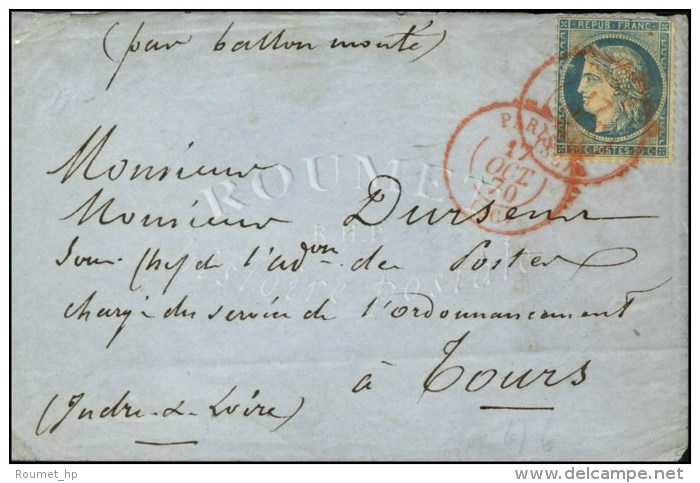 (par ballon monté)
REPUB·FRANC·
20 C·POSTES·20 C
PARIS
17
OCT.
70
ROUMET
R.H.P.
Histoire Postale
Monsieur
Monsieur Durseur
Sous Chef de l'adon des Postes
chargé du service de l'ordonnancement
à Tours
(Indre-&-Loire)
Roumet_hp
delcampe.net